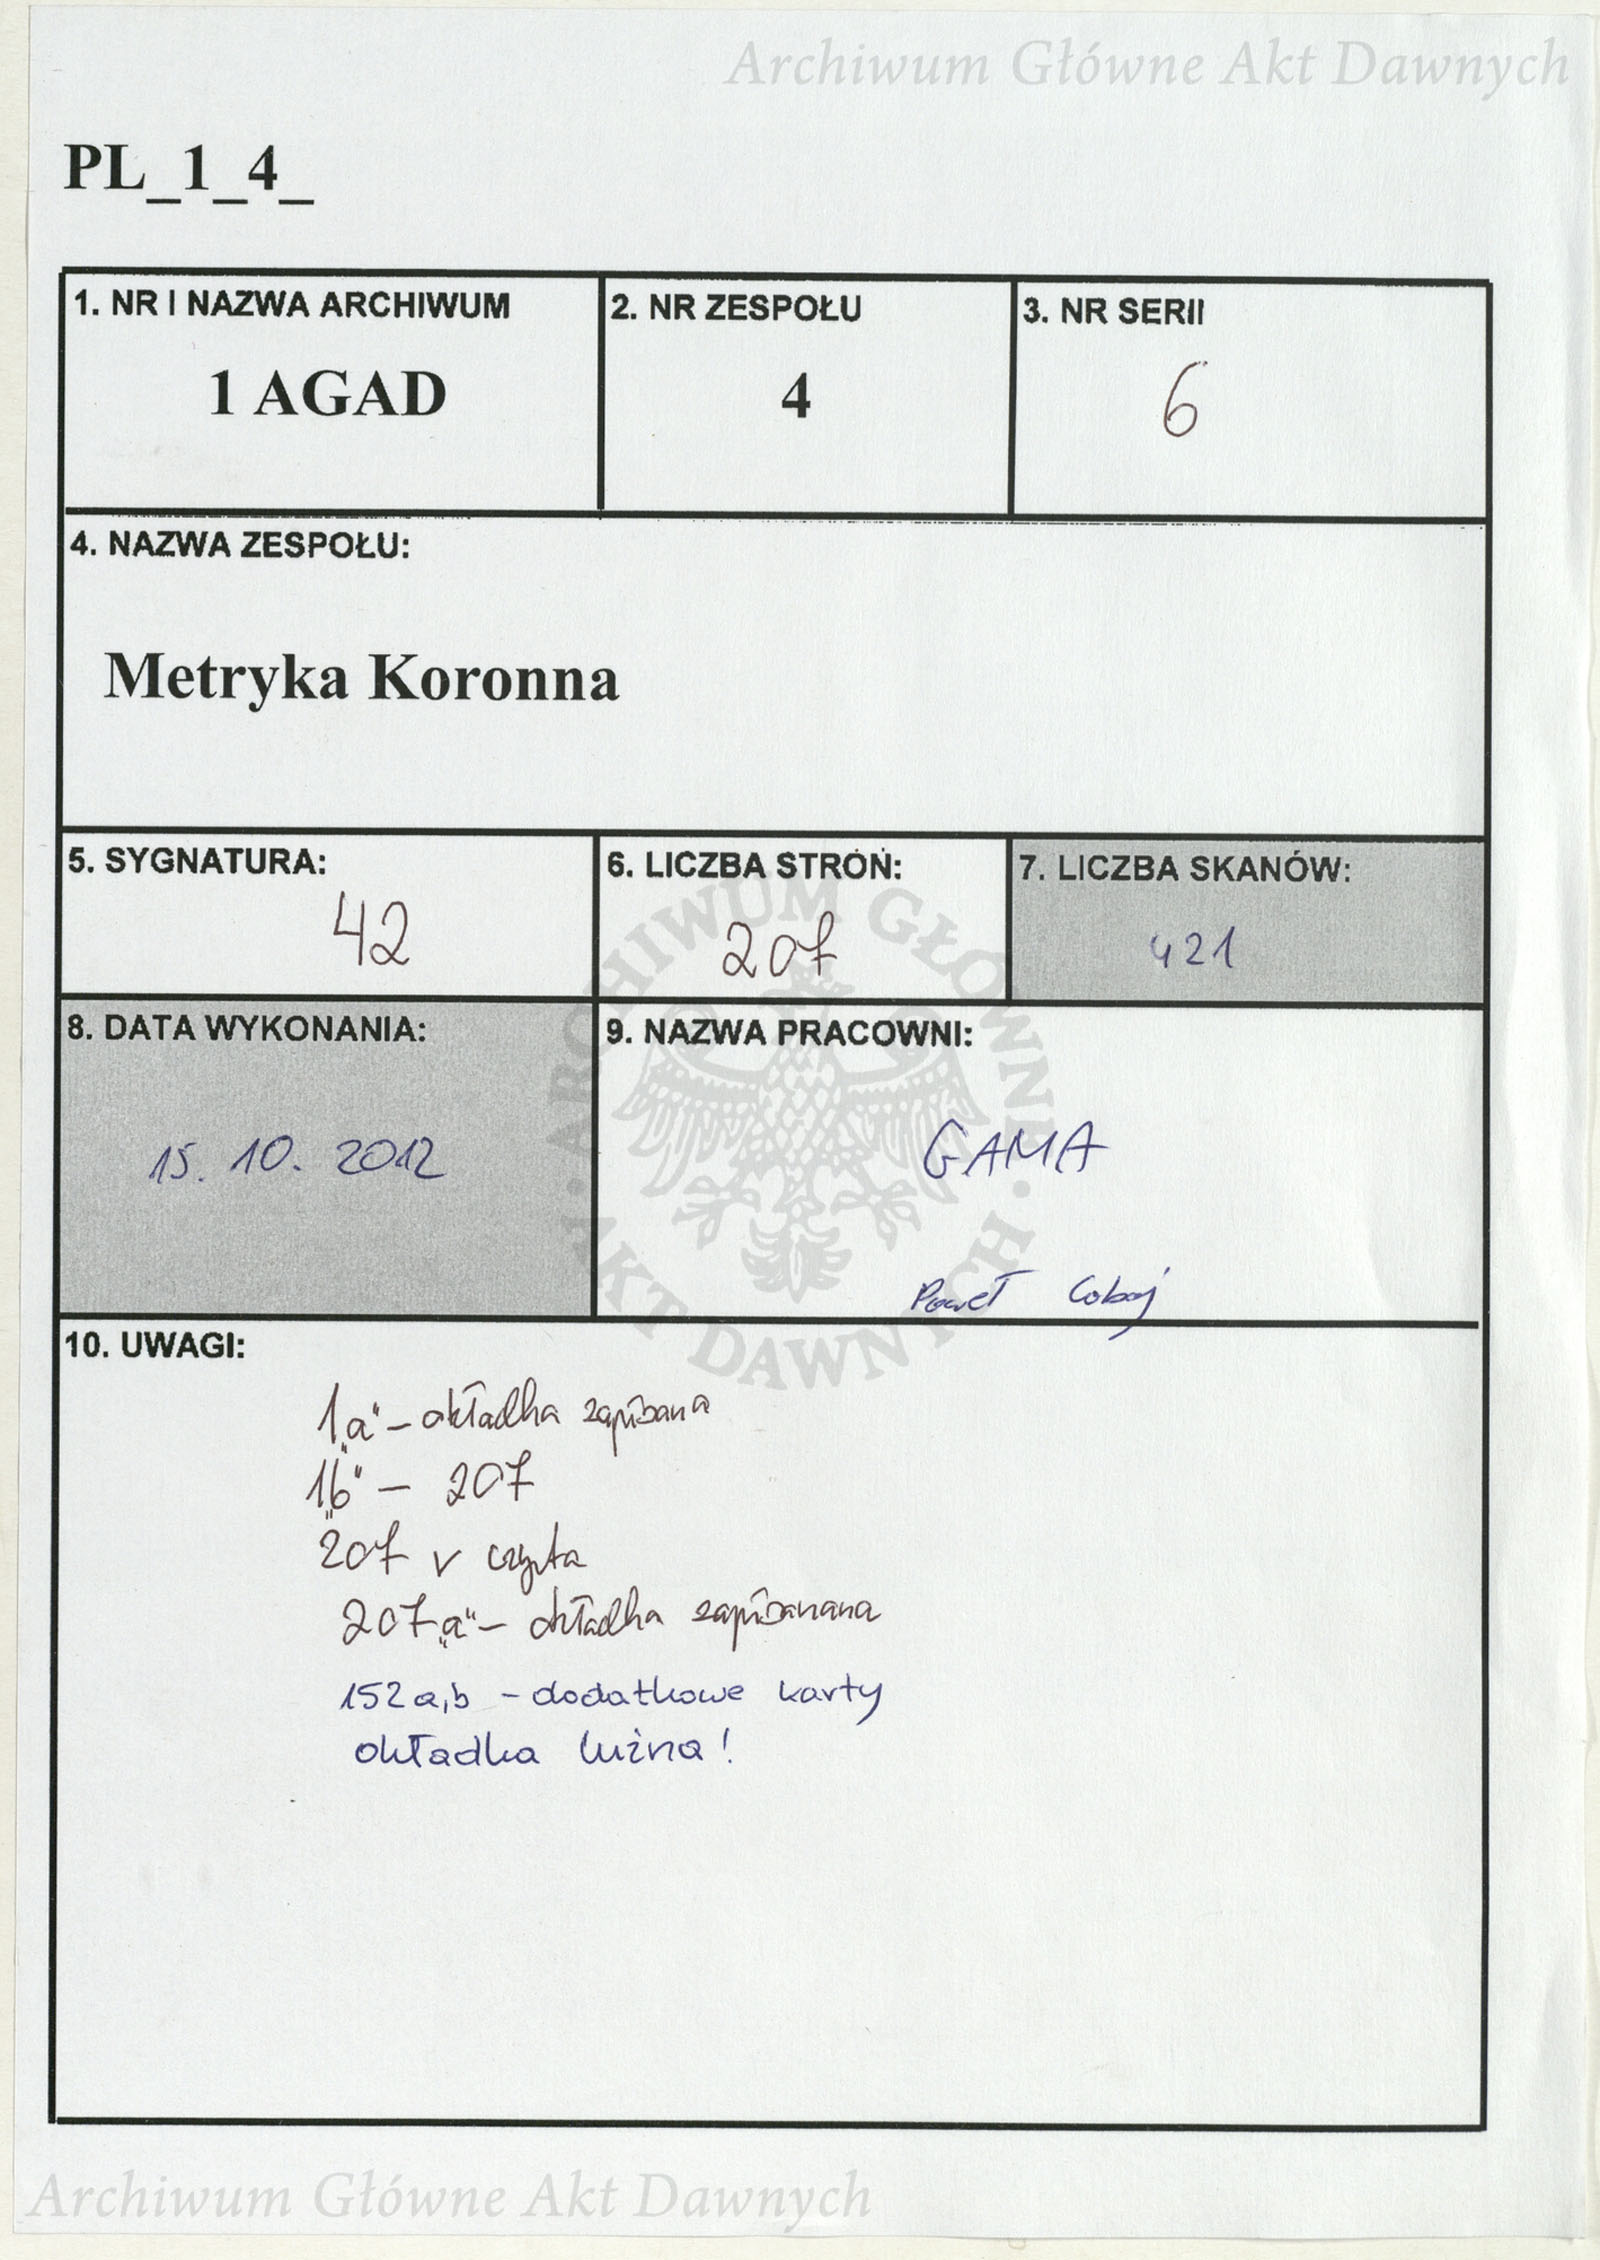 Archiwum Główne Akt Dawnych
PL_1_4_
1. NR I NAZWA ARCHIWUM
1 AGAD
2. NR ZESPOŁU
4
3. NR SERII
6
4. NAZWA ZESPOŁU:
Metryka Koronna
5. SYGNATURA:
42
6. LICZBA STRON:
207
7. LICZBA SKANÓW:
421
8. DATA WYKONANIA:
15. 10. 2012
9. NAZWA PRACOWNI:
GAMA
Paweł
10. UWAGI:
1„a" – okładka zapisana
1„b" – 207
207 v czysta
207„a" – okładka zapisanana
152a,b – dodatkowe karty
okładka luźna!
ARCHIWUM GŁÓWNE
AKT DAWNYCH
Archiwum Główne Akt Dawnych